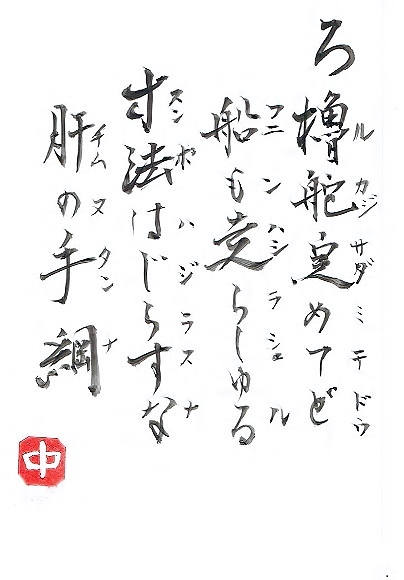 ろ
櫓舵定めてど
ルカジサダミテドゥ
船も走らしゅる
フニンハシラシュル
寸法はじらすな
スンポハジラスナ
肝の手綱
チムヌタンナ
中